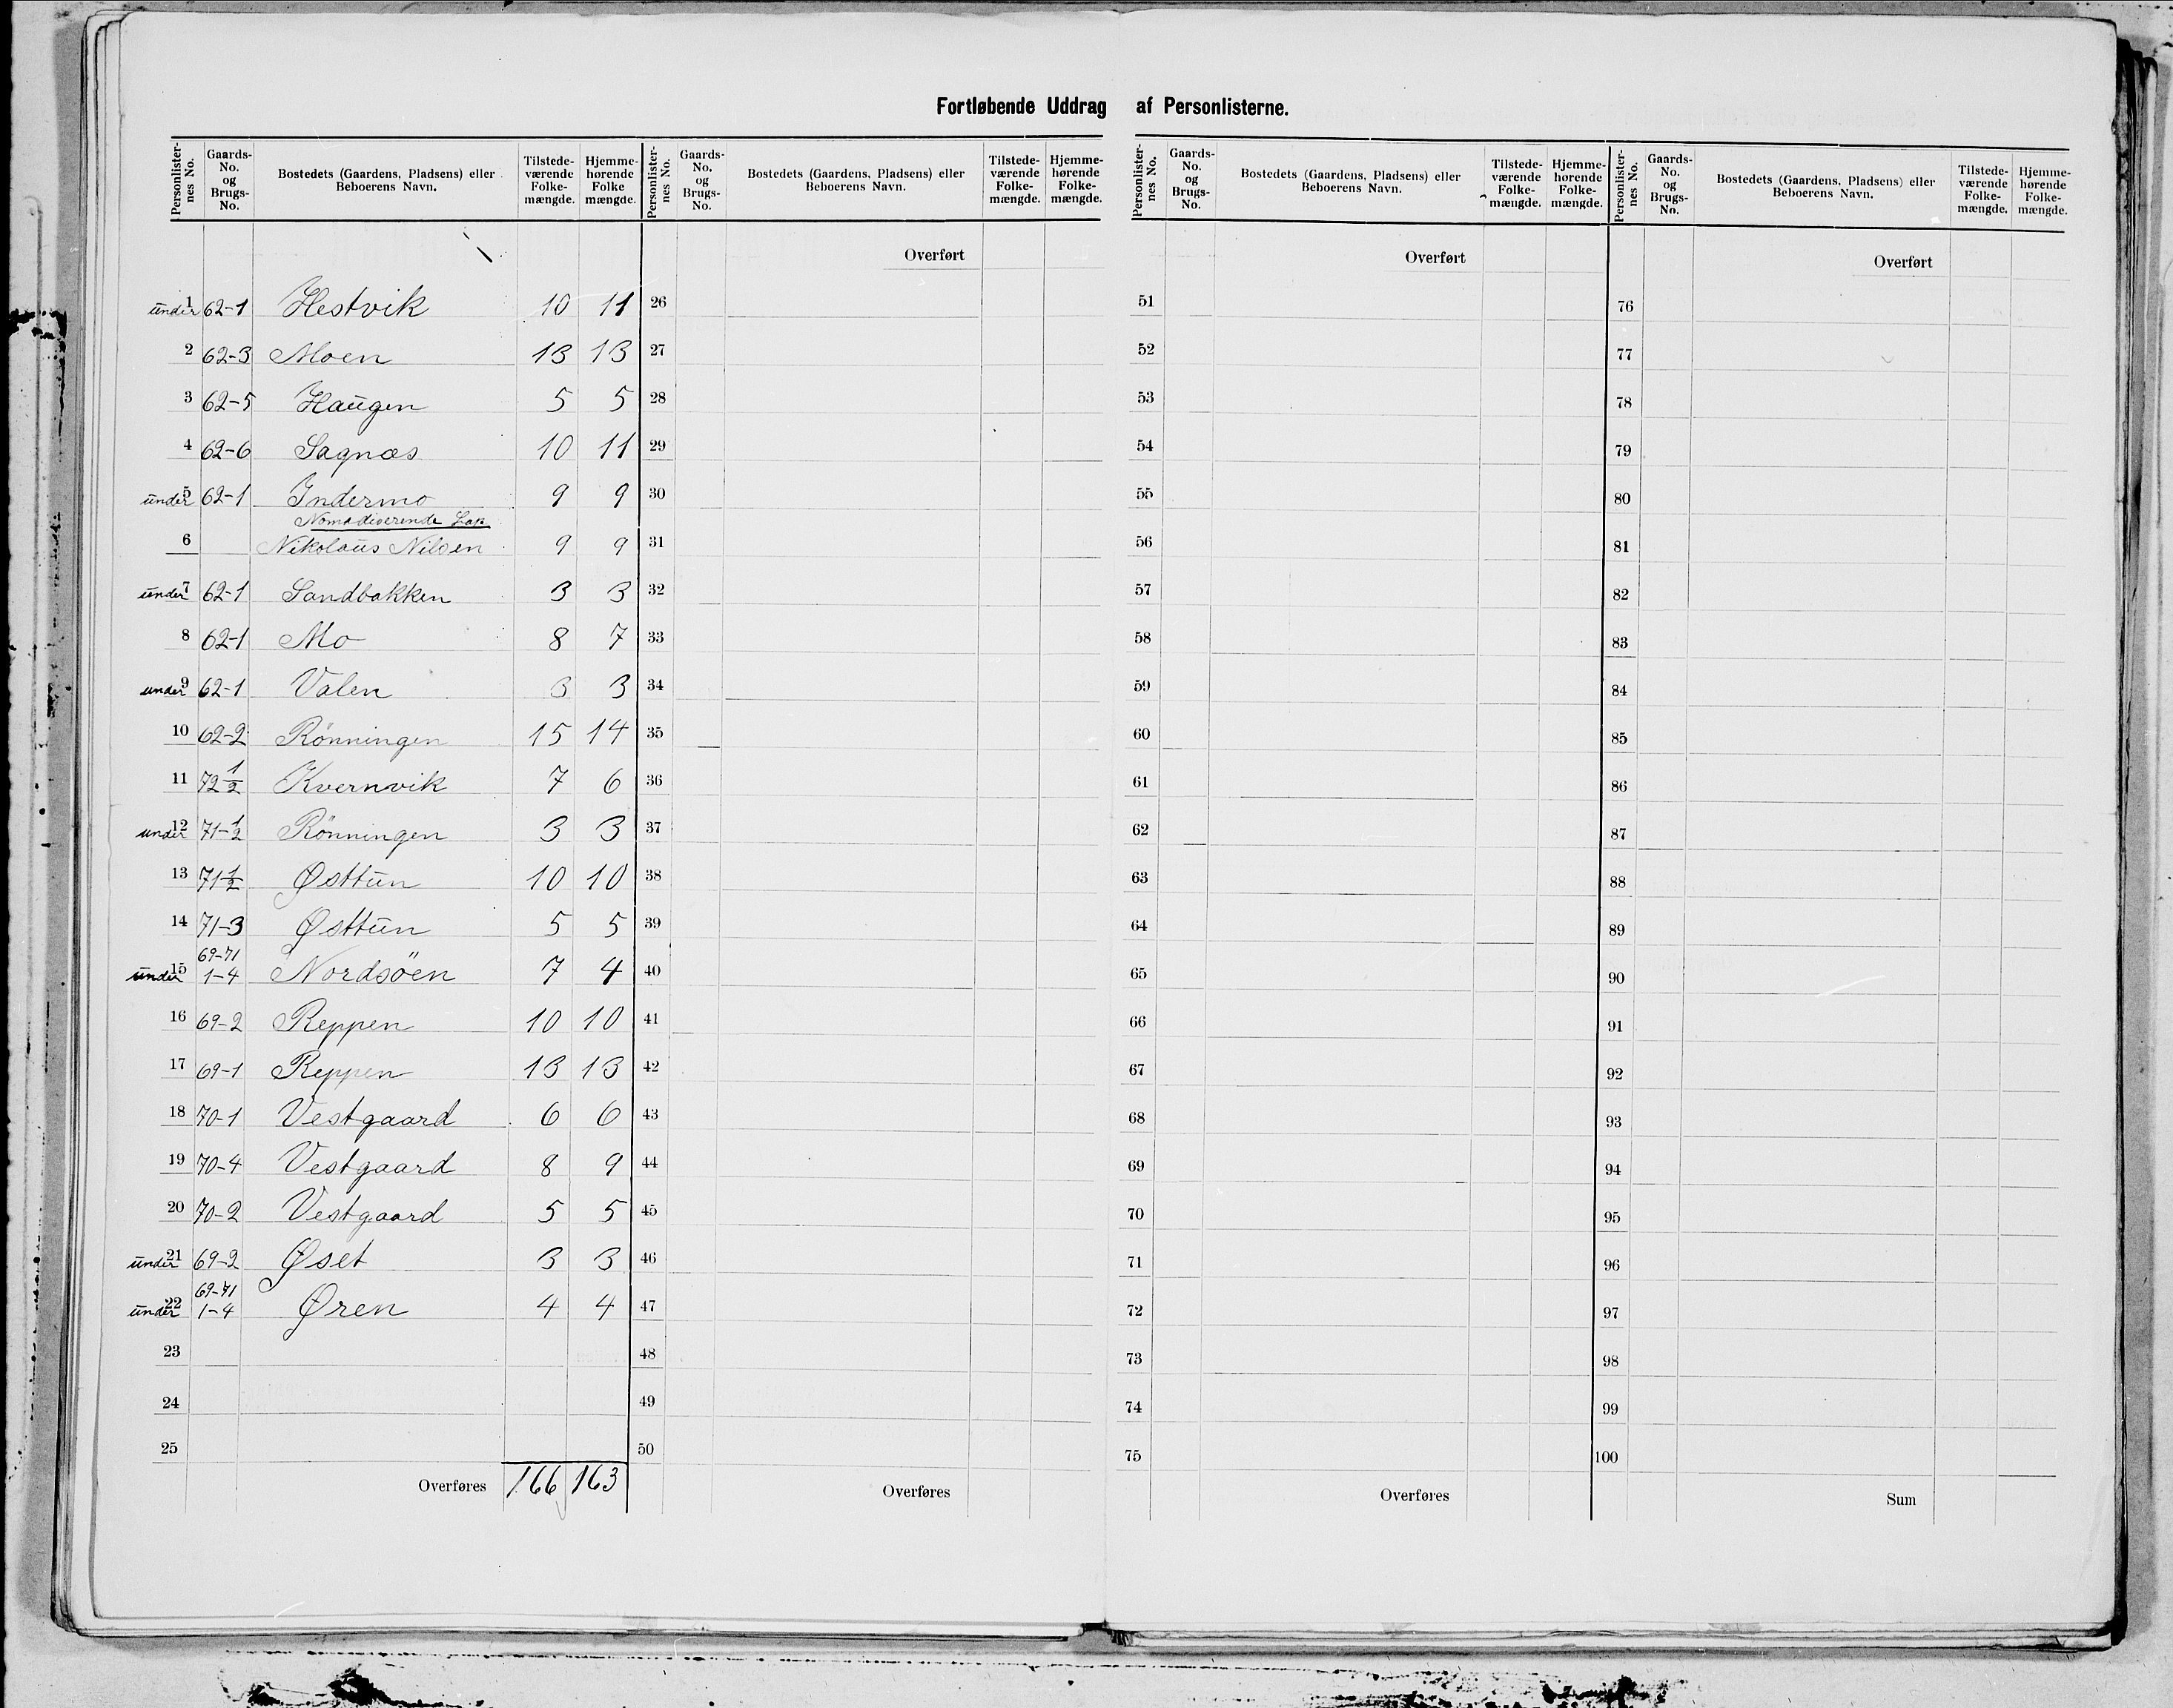 Fortløbende Uddrag af Personlisterne.
Personlister-nes No. | Gaards-No. og Brugs-No. | Bostedets (Gaardens, Pladsens) eller Beboerens Navn. | Tilstede-værende Folke-mængde. | Hjemme-hørende Folke mængde.
under 1 62-1 Hestvik 10 11
2 62-3 Moen 13 13
3 62-5 Haugen 5 5
4 62-6 Sagnæs 10 11
under 5 62-1 Indermo 9 9
Nomadiserende Lap
6 Nikolaus Nilsen 9 9
under 7 62-1 Sandbakken 3 3
8 62-1 Mo 8 7
under 9 62-1 Valen 3 3
10 62-2 Rönningen 15 14
11 72 1/2 Kvernvik 7 6
under 12 71-1/2 Rönningen 3 3
13 71 1/2 Østtun 10 10
14 71-3 Østtun 5 5
69-71
under 15 1-4 Nordsöen 7 4
16 69-2 Reppen 10 10
17 69-1 Reppen 13 13
18 70-1 Vestgaard 6 6
19 70-4 Vestgaard 8 9
20 70-2 Vestgaard 5 5
under 21 69-2 Øset 3 3
69-71
under 22 1-4 Øren 4 4
23
24
25
Overføres 166 163
Personlister-nes No. | Gaards-No. og Brugs-No. | Bostedets (Gaardens, Pladsens) eller Beboerens Navn. | Tilstede-værende Folke-mængde. | Hjemme-hørende Folke-mængde.
Overført
26
27
28
29
30
31
32
33
34
35
36
37
38
39
40
41
42
43
44
45
46
47
48
49
50
Overføres
Personlister-nes No. | Gaards-No. og Brugs-No. | Bostedets (Gaardens, Pladsens) eller Beboerens Navn. | Tilstede-værende Folke-mængde. | Hjemme-hørende Folke-mængde.
Overført
51
52
53
54
55
56
57
58
59
60
61
62
63
64
65
66
67
68
69
70
71
72
73
74
75
Overføres
Personlister-nes No. | Gaards-No. og Brugs-No. | Bostedets (Gaardens, Pladsens) eller Beboerens Navn. | Tilstede-værende Folke-mængde. | Hjemme-hørende Folke-mængde.
Overført
76
77
78
79
80
81
82
83
84
85
86
87
88
89
90
91
92
93
94
95
96
97
98
99
100
Sum